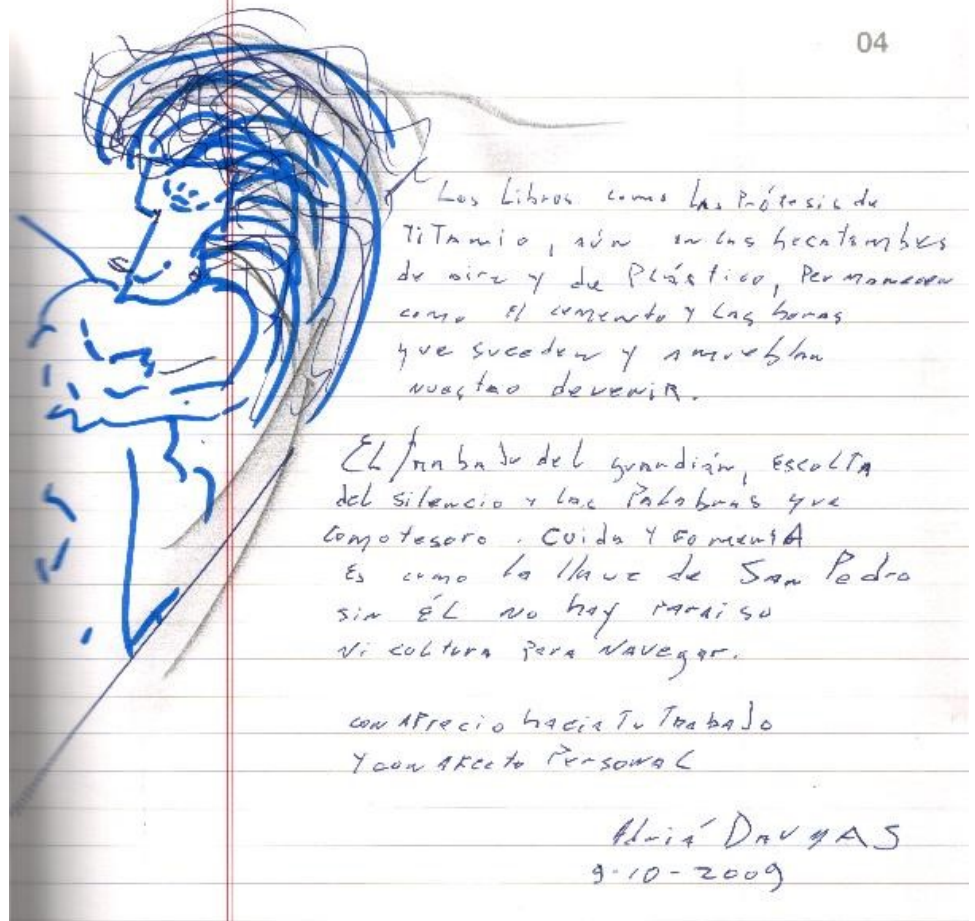 04
Los Libros como las Prótesis de
TiTAnio, aún en las hecatombes
de aire y de Plástico, Permanecen
como el cemento y las horas
que suceden y amueblan
nuestro devenir.
EL trabajo del guardián, escolta
del silencio y las Palabras que
como tesoro. Cuida y fomentA
Es como la llave de San Pedro
sin ÉL no hay paraiso
Ni cultura para Navegar.
con aprecio hacia Tu Trabajo
Y con afecto Personal
9-10-2009